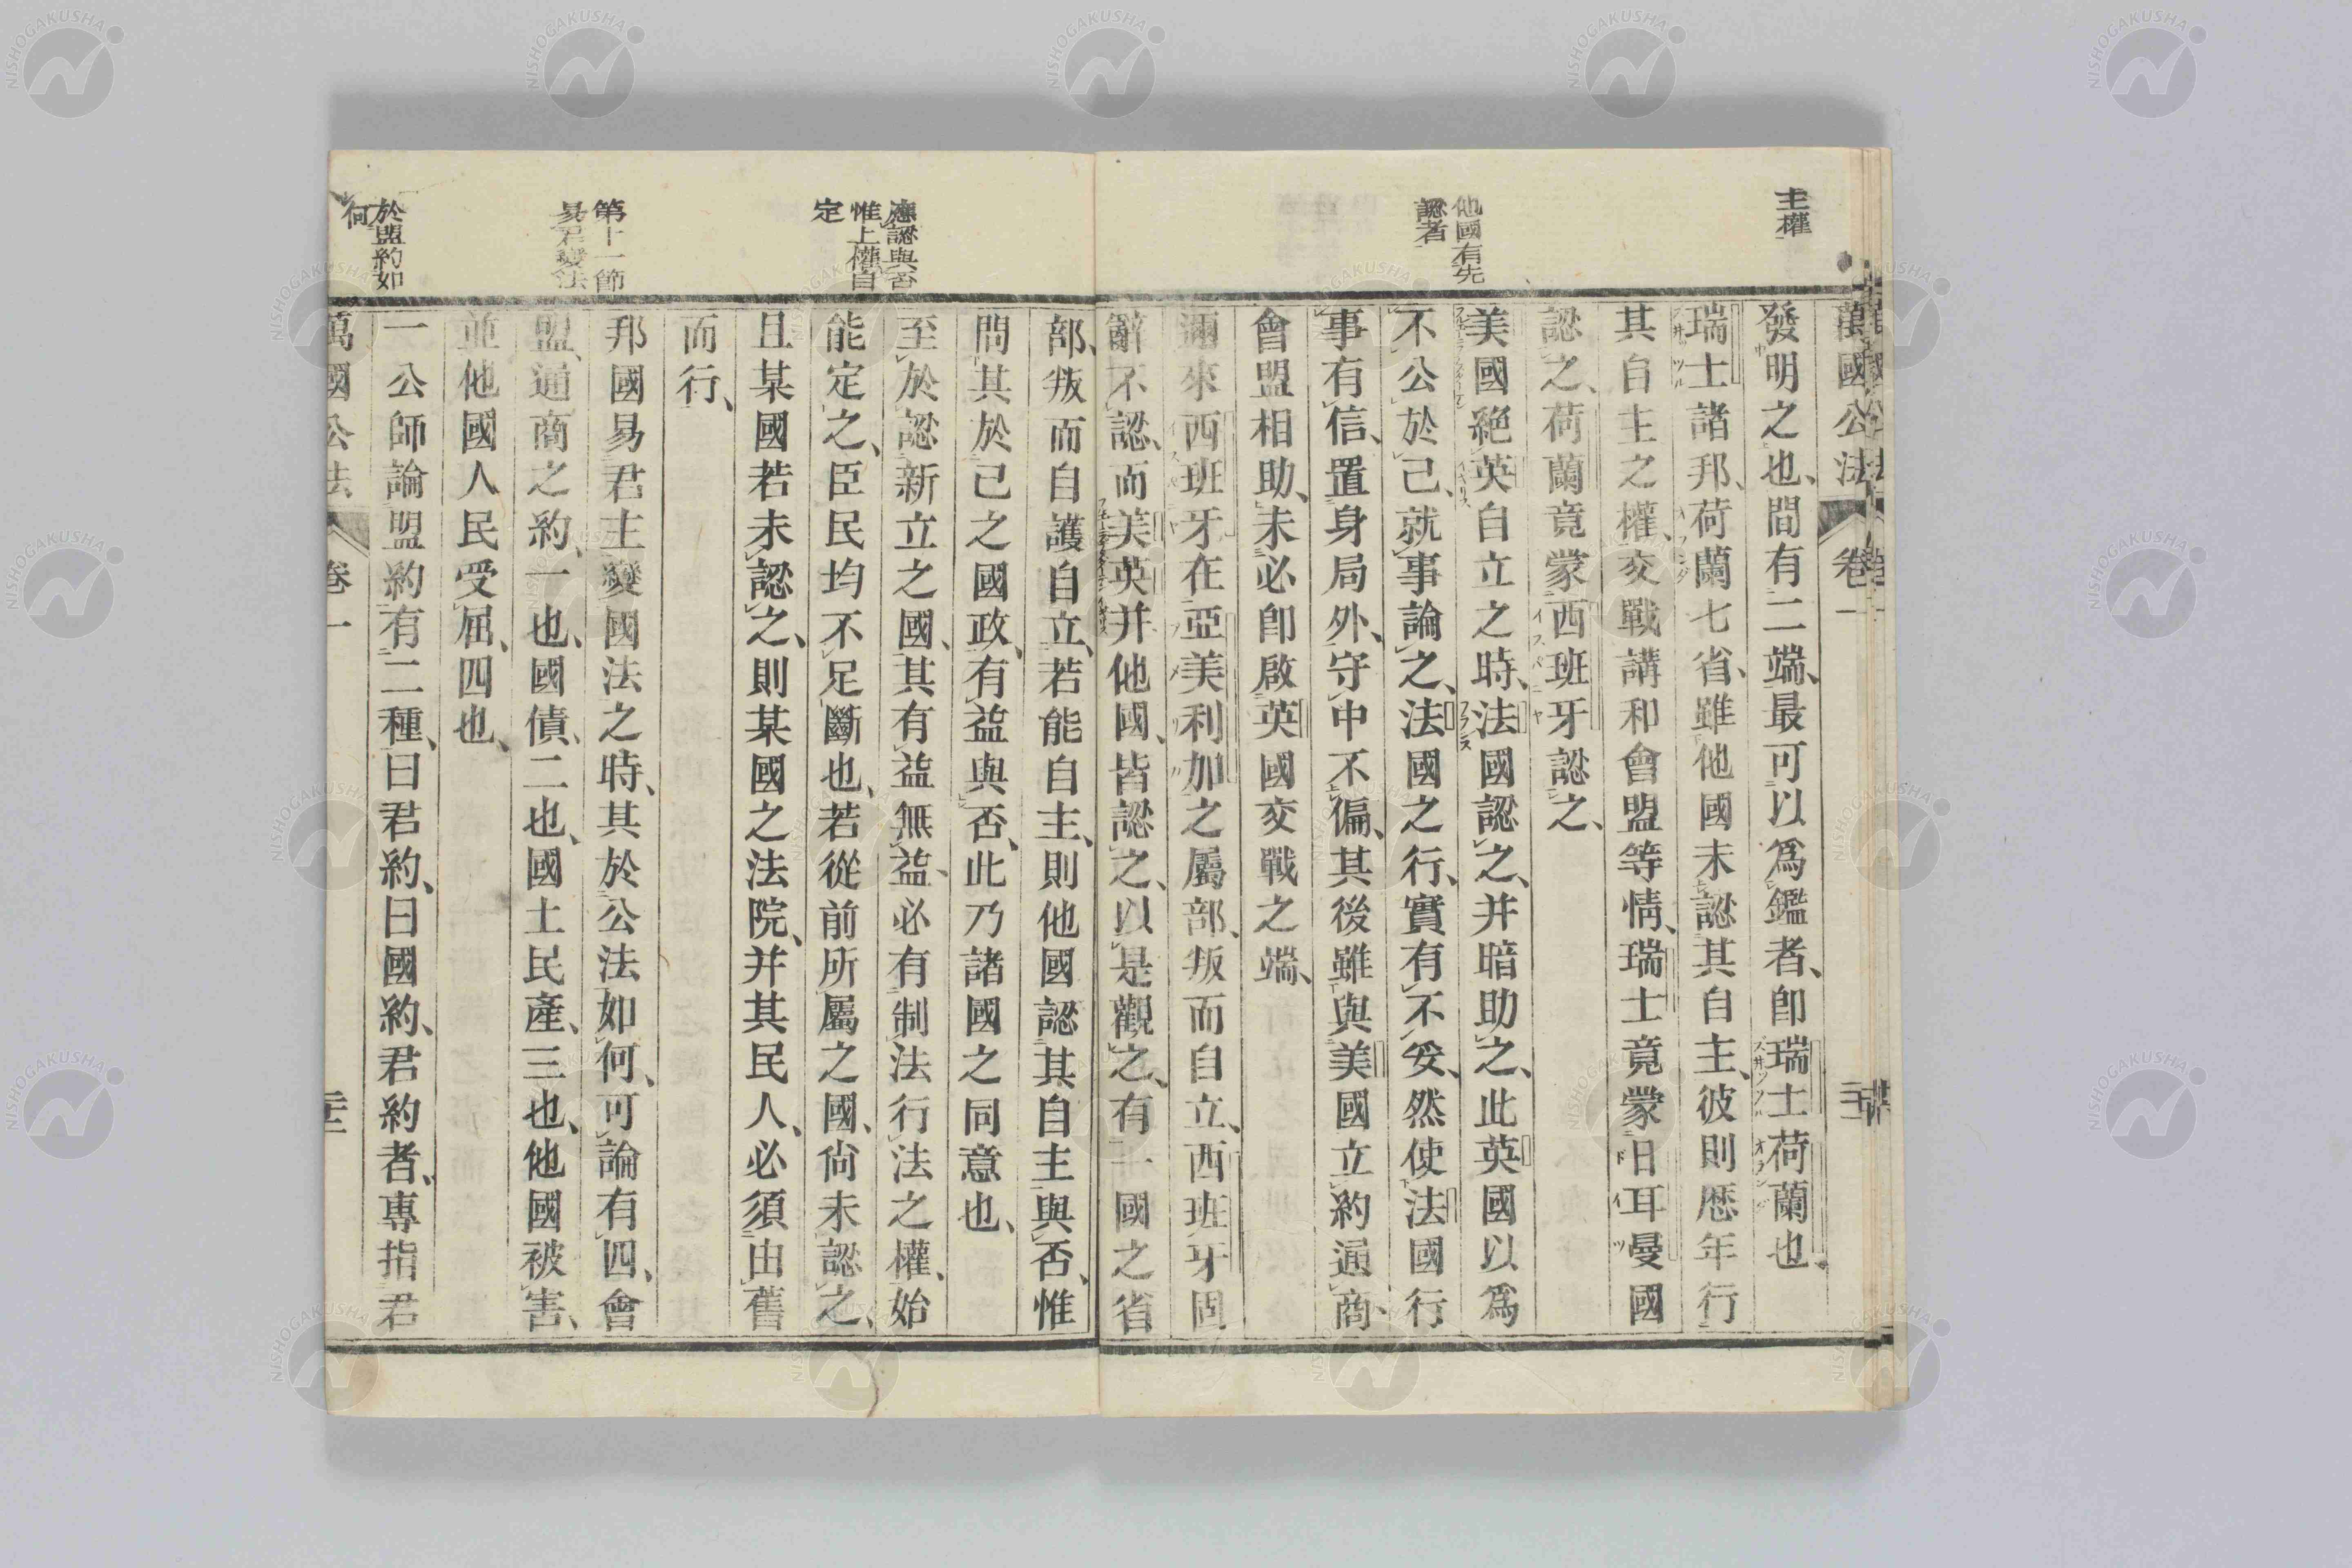 萬國公法 卷一
主權
發明之也、間有二端、最可以爲鑑者、卽瑞士荷蘭也、
瑞士諸邦、荷蘭七省、雖他國未認其自主、彼則歷年行
其自主之權、交戰講和會盟等情、瑞士竟蒙日耳曼國
認之、荷蘭竟蒙西班牙認之、
他國有先
認者
美國絕英自立之時、法國認之、并暗助之、此英國以爲
不公於己、就事論之、法國之行、實有不妥、然使法國行
事有信、置身局外、守中不偏、其後雖與美國立約通商、
會盟相助、未必卽啟英國交戰之端、
邇來西班牙在亞美利加之屬部、叛而自立、西班牙固
辭不認、而美英并他國、皆認之、以是觀之、有一國之省
部、叛而自護自立、若能自主、則他國認其自主與否、惟
問其於己之國政、有益與否、此乃諸國之同意也、
應認與否
惟上權自
定
至於認新立之國、其有益無益、必有制法行法之權、始
能定之、臣民均不足斷也、若從前所屬之國、尙未認之、
且某國若未認之、則某國之法院、并其民人、必須由舊
而行、
第十一節
易君變法
邦國易君主變國法之時、其於公法如何、可論有四、會
盟、通商之約、一也、國債、二也、國土民產、三也、他國被害、
並他國人民受屈、四也、
於盟約如
何
一公師論盟約有二種、曰君約、曰國約、君約者、專指君
萬國公法 卷一